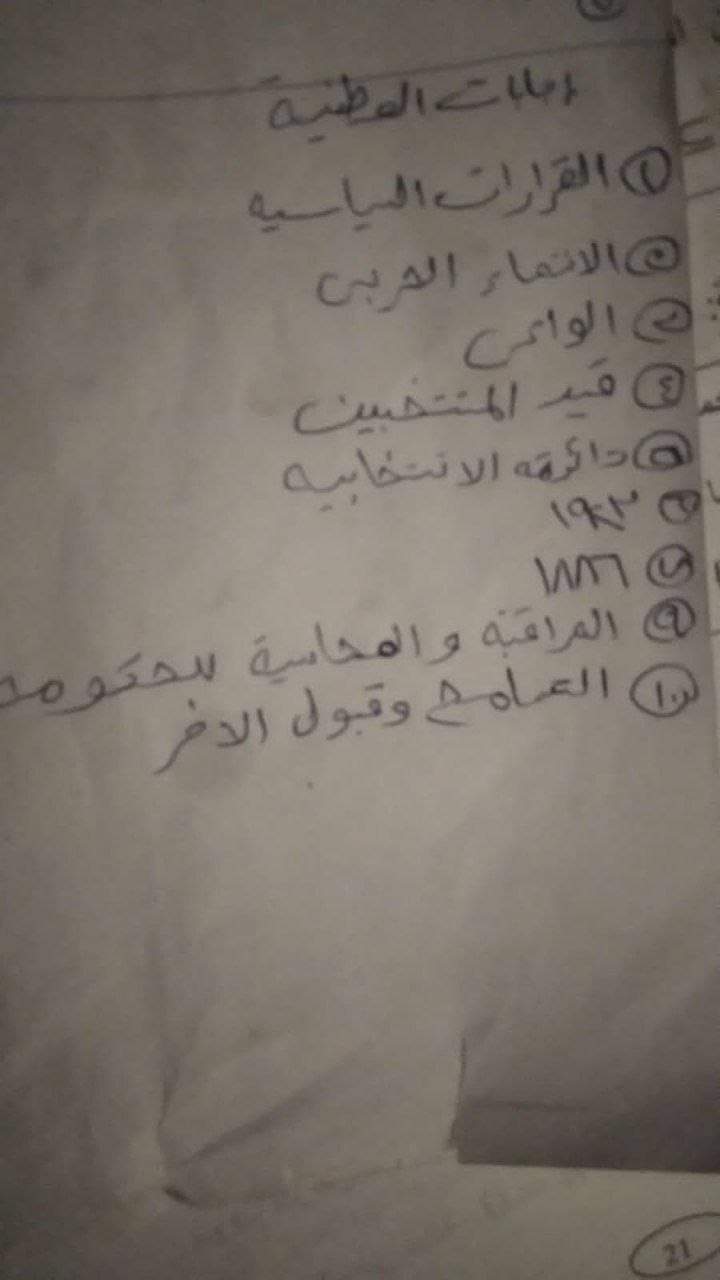 إجابات الوطنية
١ القرارات السياسيه
٢ الانتماء الحزبى
٣ الواعى
٤ قيد المنتخبين
٥ دائرته الانتخابيه
٦ ١٩٢٣
٧ ١٨٦٦
٩ المراقبة و المحاسبة للحكومه
١٠ التسامح وقبول الاخر
21